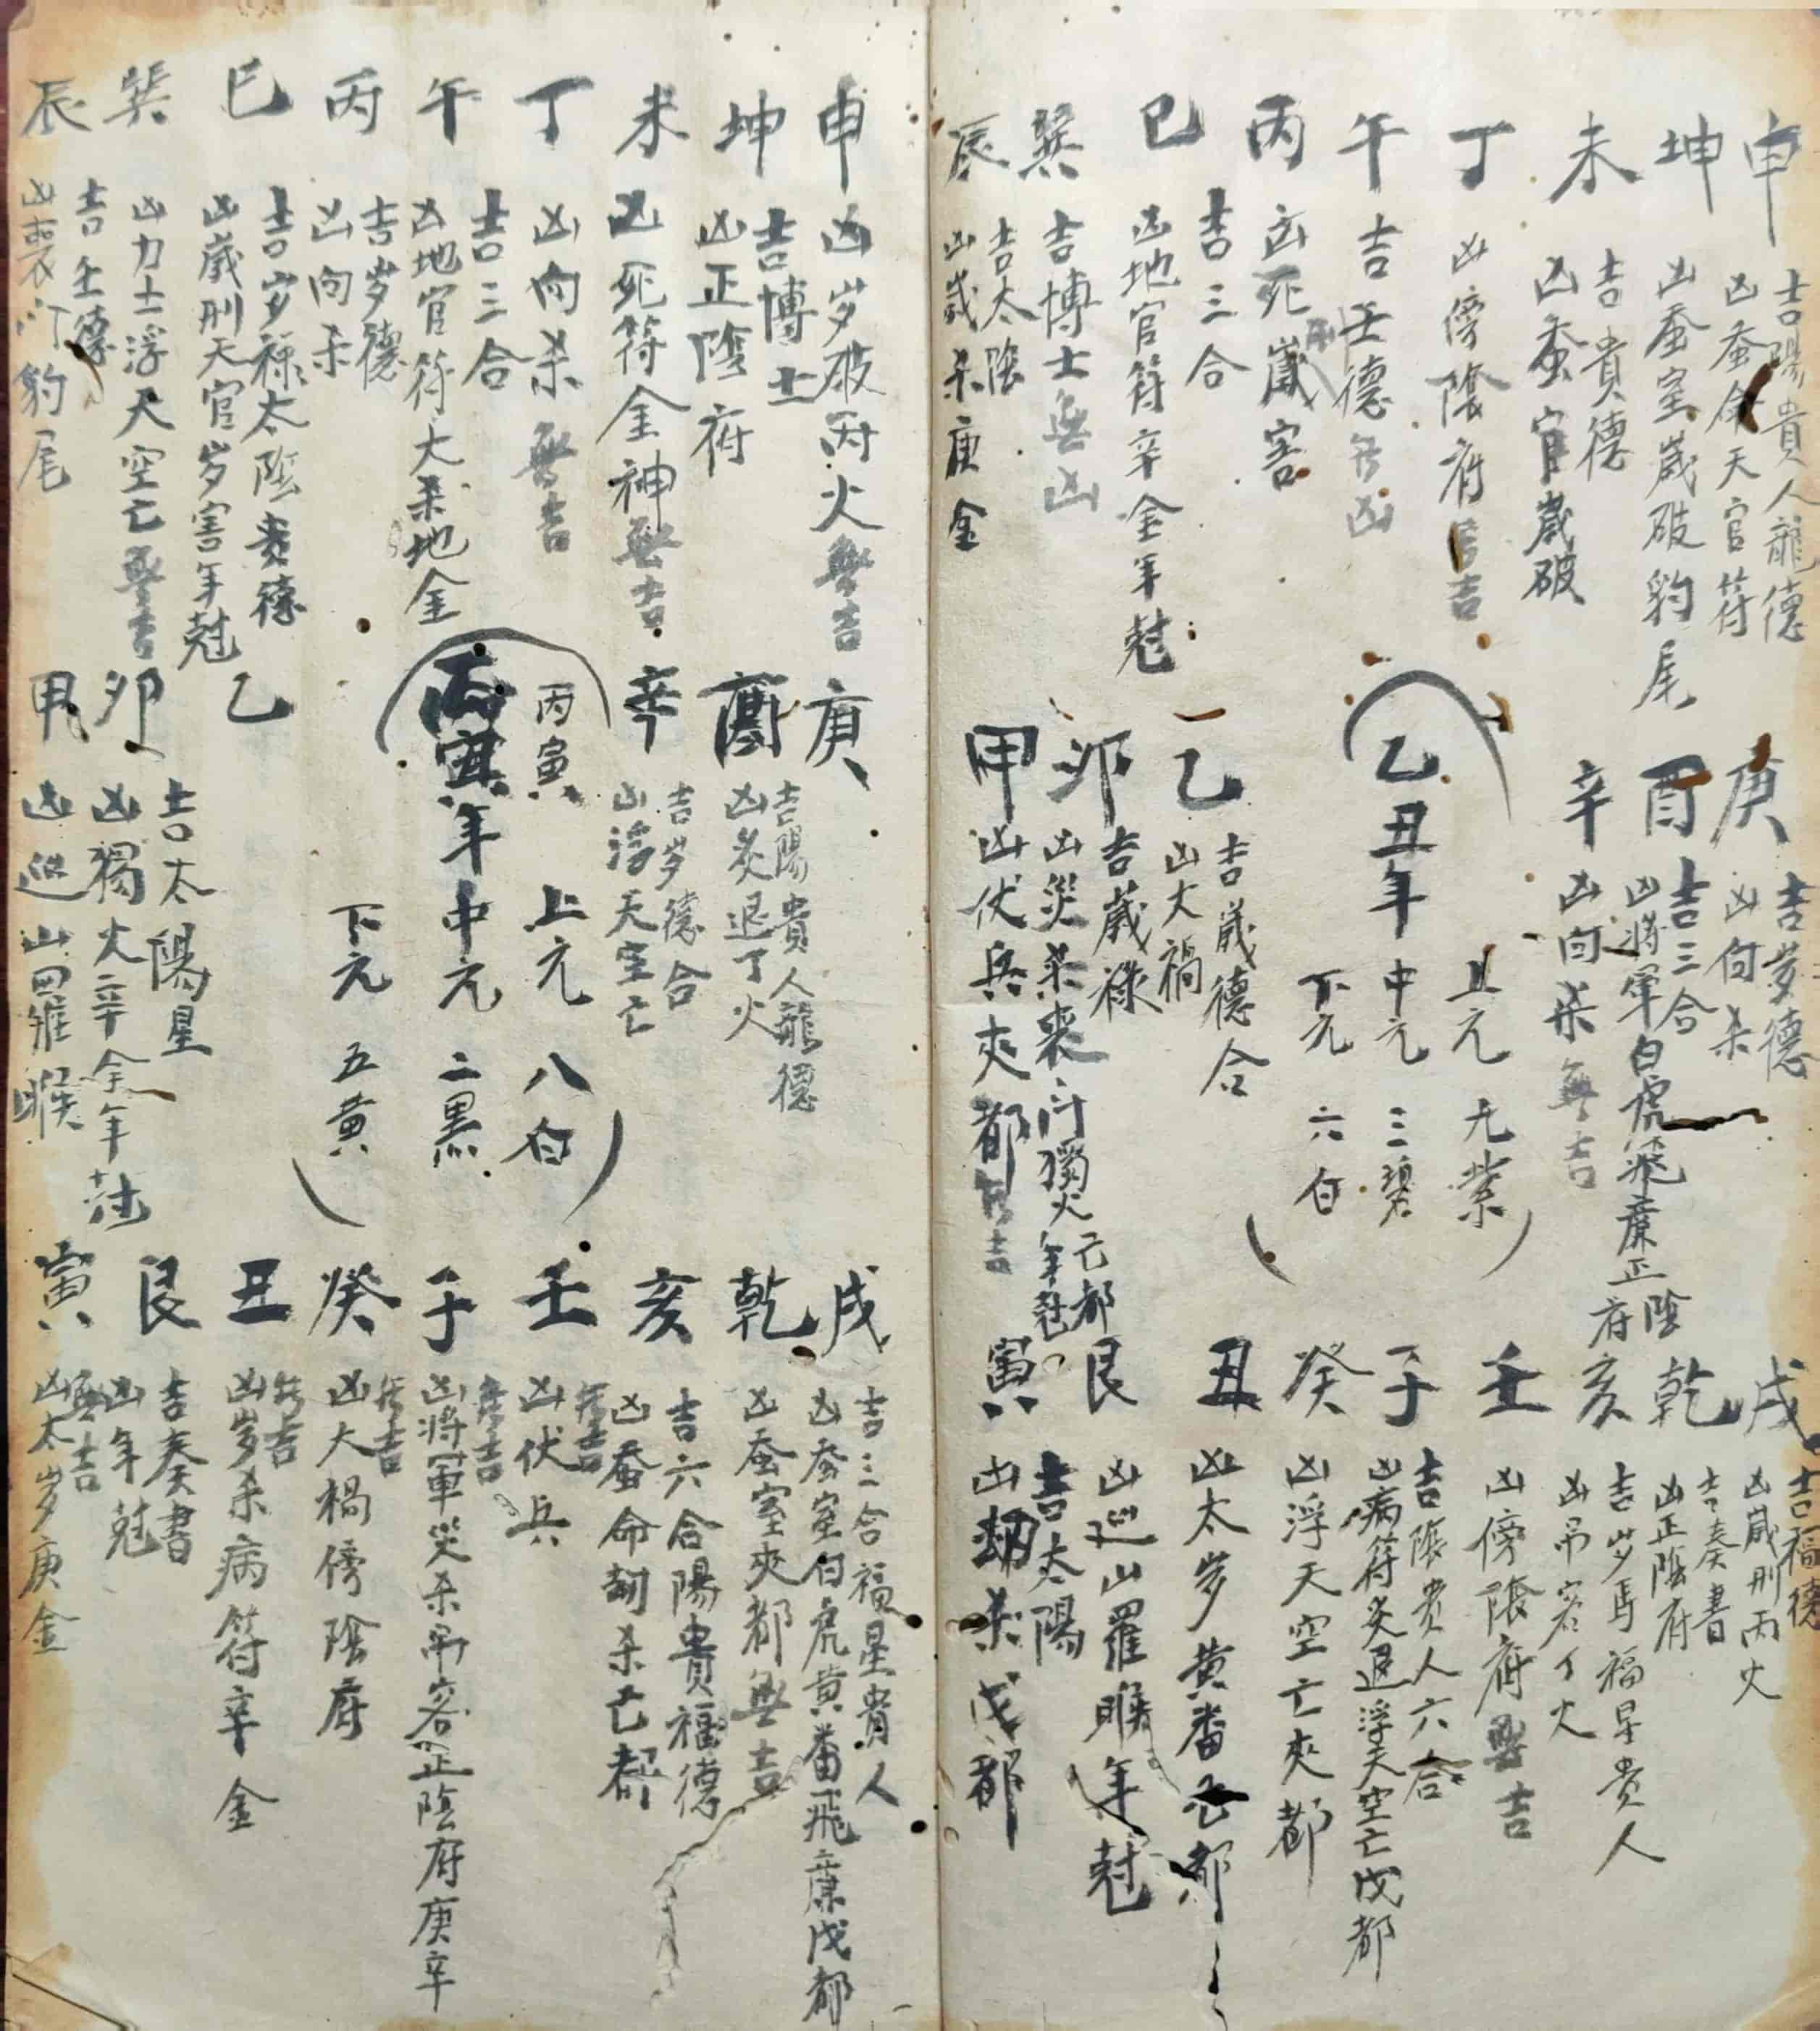 申
吉陽貴人龍德
凶蚕命天官符
坤
凶蚕室歲破豹尾
未
吉貴德
凶蚕官歲破
丁
凶傍陰府無吉
午
吉壬德無凶
丙
凶死符歲害
巳
吉三合
凶地官符辛金年尅
巽
吉博士無凶
辰
吉太陰
凶歲杀庚金
庚
吉岁德
凶向杀
酉
吉三合
凶將軍白虎飛廉正陰府
辛
凶向杀無吉
乙丑年
上元 九紫
中元 三碧
下元 六白
乙
吉歲德合
凶大禍
卯
吉歲祿
凶災杀喪門獨火年尅
己都
甲
凶伏兵夾都無吉
戌
吉福德
凶歲刑丙火
乾
吉奏書
凶正陰府
亥
吉岁馬福星贵人
凶吊客丁火
壬
凶傍陰府無吉
子
吉陰贵人六合
凶病符炙退浮天空亡戊都
癸
凶浮天空亡夾都
丑
凶太岁黄番己都
艮
凶巡山羅睺年尅
寅
吉太陽
凶劫杀戊都
申
凶岁破丙火無吉
坤
吉博士
凶正陰府
未
凶死符金神無吉
丁
凶向杀無吉
午
吉三合
凶地官符大杀地金
丙
吉岁德
凶向杀
巳
吉岁禄太陰贵德
凶歲刑天官岁害年尅
巽
凶力士浮天空亡無吉
辰
吉壬德
凶喪门豹尾
庚
酉
吉陽貴人龍德
凶炙退丁火
辛
吉岁德合
凶浮天空亡
丙寅
丙寅年
上元 八白
中元 二黑
下元 五黄
乙
卯
吉太陽星
凶獨火辛金年
甲
凶巡山羅睺
戌
吉三合福星貴人
凶蚕室白虎黄番飛廉戊都
乾
凶蚕室夾都無吉
亥
吉六合陽貴福德
凶蚕命劫杀己都
壬
無吉
凶伏兵
子
無吉
凶將軍災杀吊客正陰府庚辛
癸
無吉
凶大禍傍陰府
丑
無吉
凶岁杀病符辛金
艮
吉奏書
凶年尅
寅
無吉
凶太岁庚金